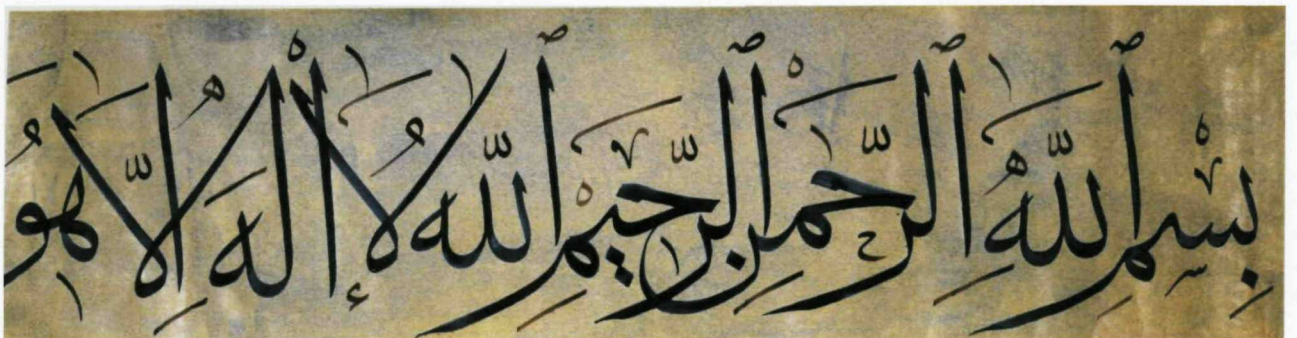 بِسْمِ اللَّهِ الرَّحْمَٰنِ الرَّحِيمِ اللَّهُ لَا إِلَٰهَ إِلَّا هُوَ